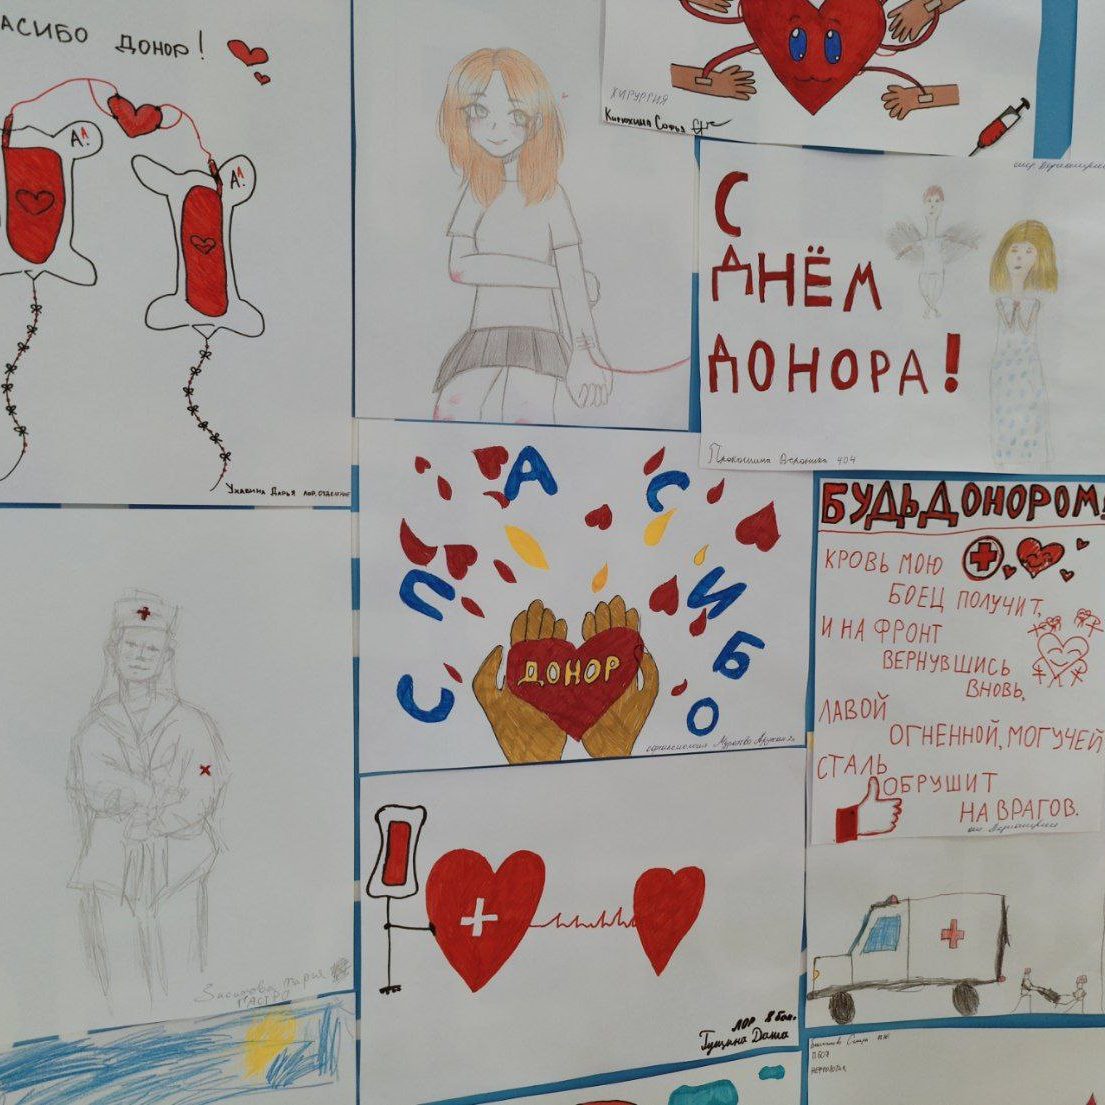 АСИБО ДОНОР!
А!
А!
УХАВИНА ДАРЬЯ ЛОР, ОТДЕЛЕНИЕ
ХИРУРГИЯ
Кирюхина Софья
С
ДНЁМ
ДОНОРА!
Прокошина Вероника 404
СПАСИБО
ДОНОР
БУДЬ ДОНОРОМ!
КРОВЬ МОЮ
БОЕЦ ПОЛУЧИТ,
И НА ФРОНТ
ВЕРНУВШИСЬ
ВНОВЬ,
ЛАВОЙ
ОГНЕННОЙ, МОГУЧЕЙ
СТАЛЬ
ОБРУШИТ
НА ВРАГОВ.
ГАСТРО
ЛОР 8 бол.
Гущина Даша